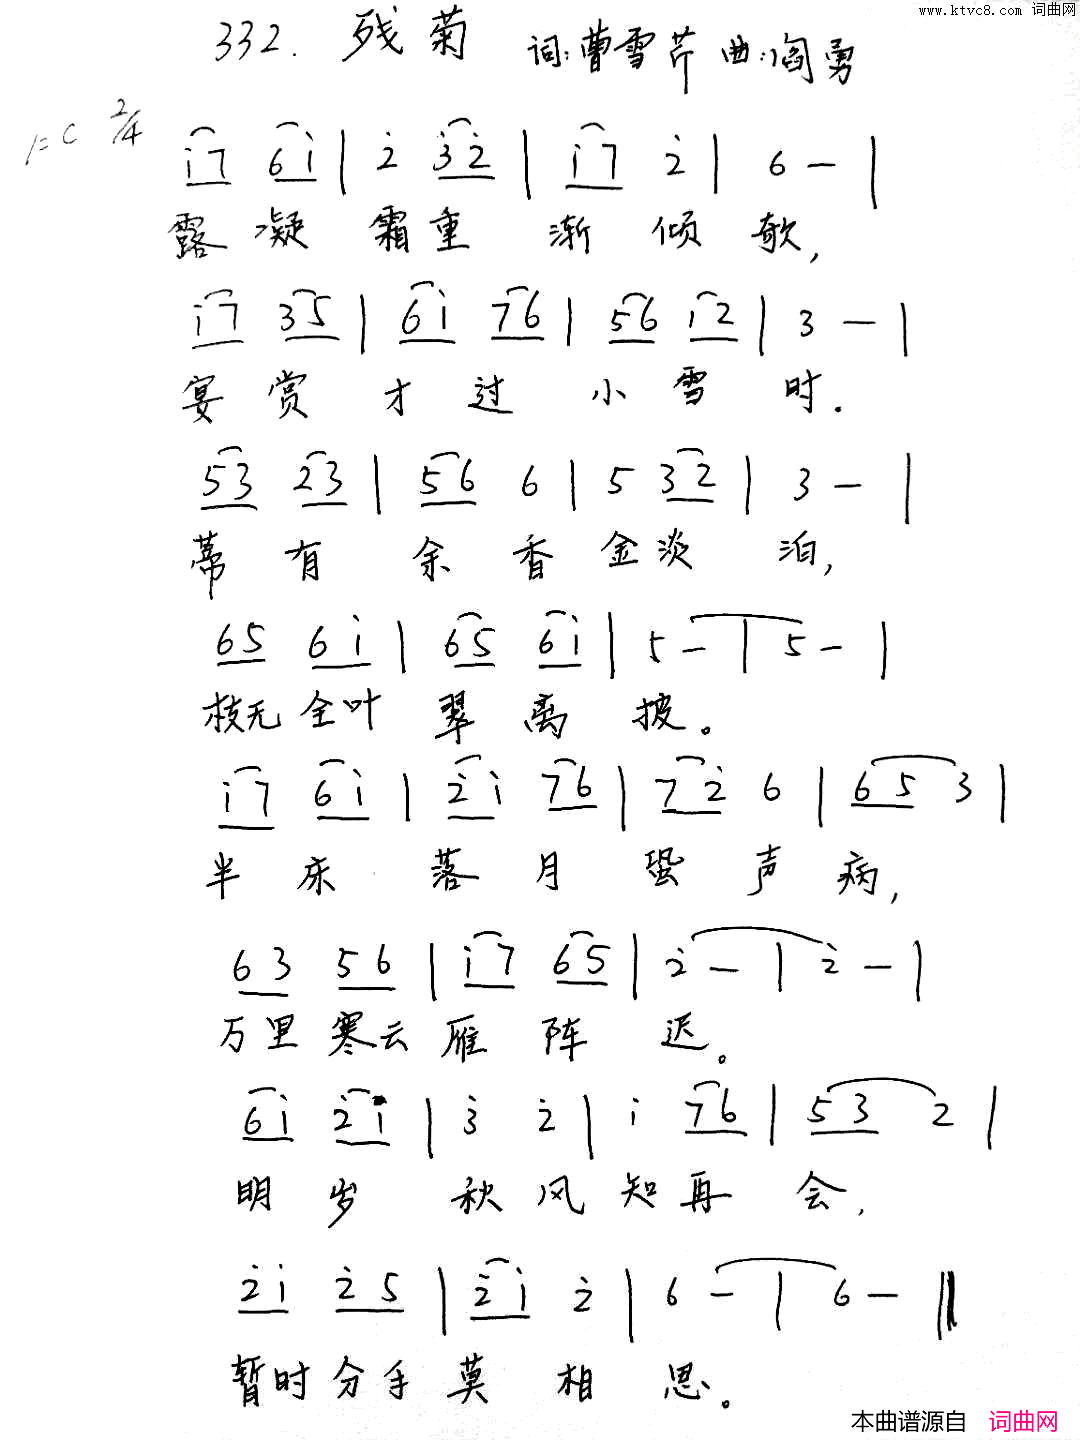 www.ktvc8.com 词曲网
332. 残菊 词:曹雪芹 曲:阎勇
1=C 2/4
i7 6i | 2̇ 3̇2̇ | i7 2̇ | 6 — |
露凝霜重渐倾欹,
i7 35 | 6i 76 | 56 i2 | 3 — |
宴赏才过小雪时.
53 23 | 56 6 | 5 32 | 3 — |
蒂有余香金淡泊,
65 6i | 65 6i | 5 — | 5 — |
枝无全叶翠离披。
i7 6i | 2̇i 76 | 72̇ 6 | 65 3 |
半床落月蛩声病,
63 56 | i7 65 | 2̇ — | 2̇ — |
万里寒云雁阵迟。
6i 2̇i | 3̇ 2̇ | i 76 | 53 2 |
明岁秋风知再会,
2̇i 2̇5 | 2̇i 2̇ | 6 — | 6 — ‖
暂时分手莫相思。
本曲谱源自 词曲网